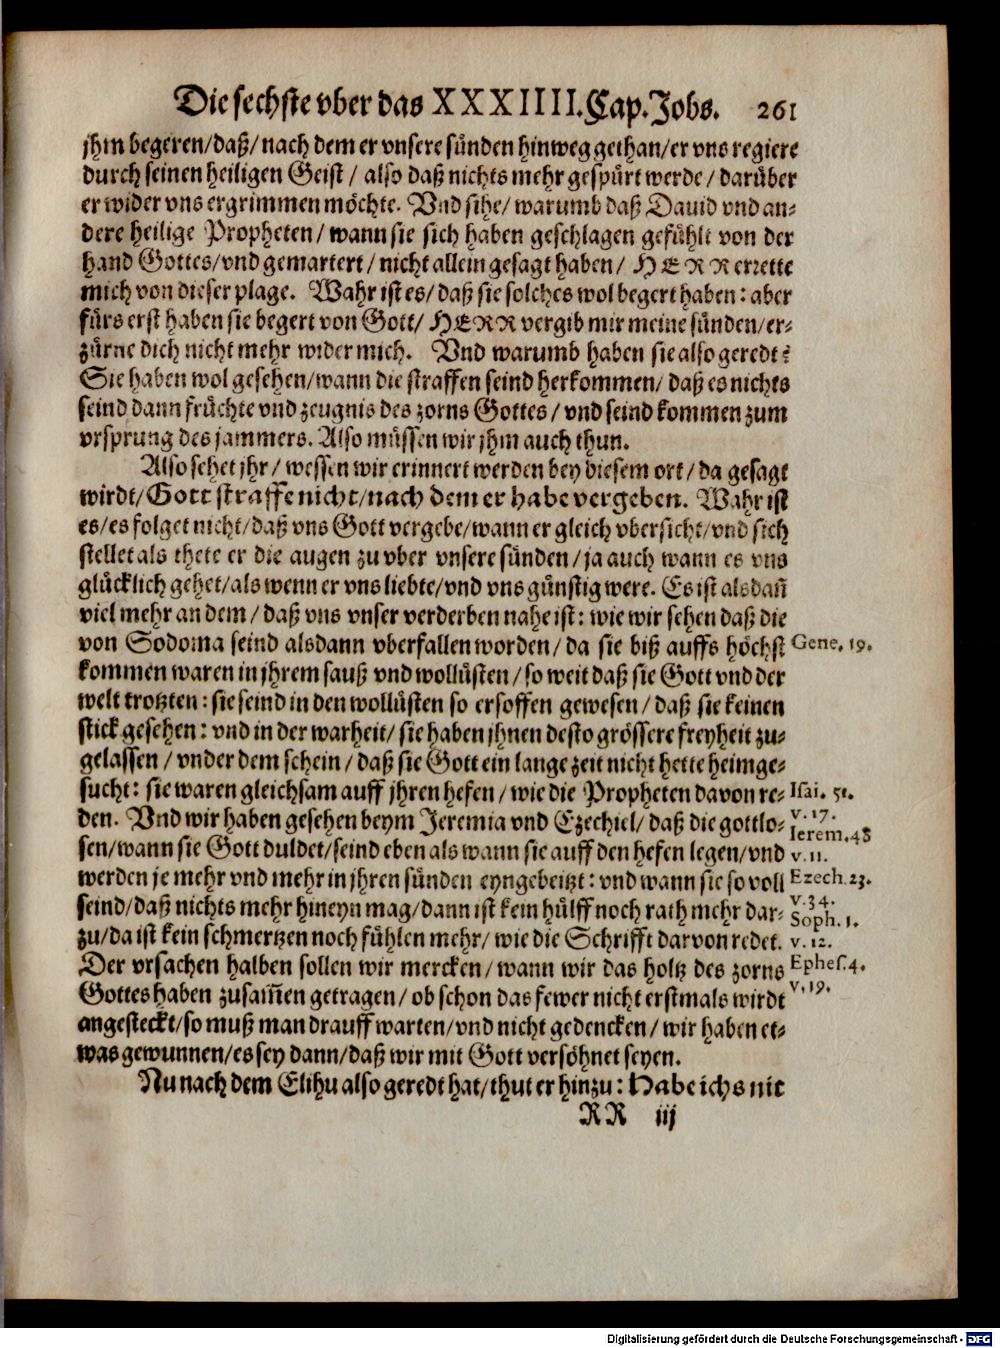 Die sechste vber das XXXIIII. Cap. Jobs. 261
jhm begeren/daß/nach dem er vnsere sünden hinweg gethan/er vns regiere
durch seinen heiligen Geist / also daß nichts mehr gespürt werde / darüber
er wider vns ergrimmen möchte. Vnd sihe/ warumb daß Dauid vnd an-
dere heilige Propheten / wann sie sich haben geschlagen gefühlt von der
hand Gottes/vnd gemartert / nicht allein gesagt haben/ HERR errette
mich von dieser plage. Wahr ist es/ daß sie solches wol begert haben: aber
fürs erst haben sie begert von Gott/ HERR vergib mir meine sünden/er-
zürne dich nicht mehr wider mich. Vnd warumb haben sie also geredt?
Sie haben wol gesehen/wann die straffen seind herkommen/ daß es nichts
seind dann früchte vnd zeugnis des zorns Gottes / vnd seind kommen zum
vrsprung des jammers. Also müssen wir jhm auch thun.
Also sehet jhr / wessen wir erinnert werden bey diesem ort / da gesagt
wirdt/ Gott straffe nicht/nach dem er habe vergeben. Wahr ist
es/es folget nicht/daß vns Gott vergebe/wann er gleich vbersicht/vnd sich
stellet als thete er die augen zu vber vnsere sünden / ja auch wann es vns
glücklich gehet/als wenn er vns liebte/vnd vns günstig were. Es ist als dañ
viel mehr an dem / daß vns vnser verderben nahe ist: wie wir sehen daß die
von Sodoma seind alsdann vberfallen worden / da sie biß auffs höchst
Gene. 19.
kommen waren in jhrem sauß vnd wollüsten / so weit daß sie Gott vnd der
welt trotzten: sie seind in den wollüsten so ersoffen gewesen / daß sie keinen
stick gesehen: vnd in der warheit/ sie haben jhnen desto grössere freyheit zu-
gelassen / vnder dem schein / daß sie Gott ein lange zeit nicht hette heimge-
sucht: sie waren gleichsam auff jhren hefen / wie die Propheten davon re-
Isai. 51.
v. 17.
den. Vnd wir haben gesehen beym Jeremia vnd Ezechiel/ daß die gottlo-
Ierem. 48
sen/wann sie Gott duldet/seind eben als wann sie auff den hefen legen/vnd
v. 11.
werden je mehr vnd mehr in jhren sünden eyngebeitzt: vnd wann sie so voll
Ezech. 23.
v. 34.
seind/daß nichts mehr hineyn mag/dann ist kein hülff noch rath mehr dar-
Soph. 1.
zu/da ist kein schmertzen noch fühlen mehr/ wie die Schrifft darvon redet.
v. 12.
Der vrsachen halben sollen wir mercken/ wann wir das holtz des zorns
Ephes. 4.
v. 19.
Gottes haben zusam̃en getragen / ob schon das fewer nicht erstmals wirdt
angesteckt/so muß man drauff warten/vnd nicht gedencken / wir haben et-
was gewunnen/es sey dann/daß wir mit Gott versöhnet seyen.
Nu nach dem Elihu also geredt hat/thut er hinzu: Habe ichs nit
RR iij
Digitalisierung gefördert durch die Deutsche Forschungsgemeinschaft - DFG